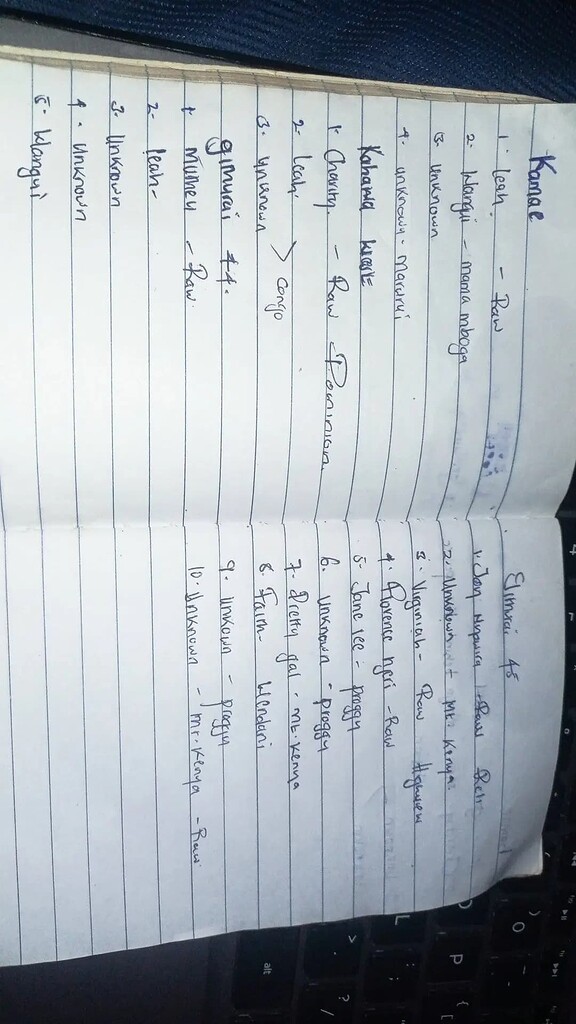 Kamae
1. Leah. - Raw
2. Wangui - mama mboga
3. Unknown
4. unknown - Marurui
Kahawa West
1. Charity. - Raw Dominion
2. Leah. > Congo
3. Unknown
gimurai 44.
1. Mumeu - Raw.
2. Leah -
3. Unknown
4. Unknown
5. Wangui
45
1. Joy - Raw
2. Unknown - Mt. Kenya
3. Virginiah - Raw Highview
4. Florence Njeri - Raw
5. Jane lee - proggy
6. Unknown - proggy
7. Pretty gal - Mt. Kenya
8. Faith - Wendani
9. Unkown - proggy
10. Unknown - Mt. Kenya - Raw
L
O
P
alt